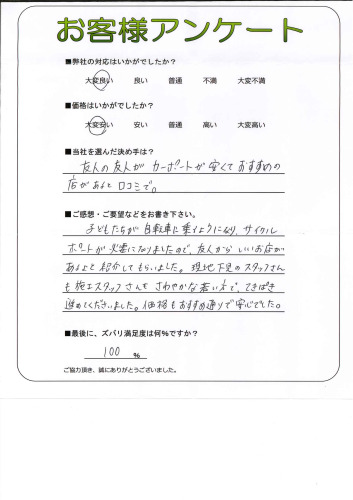 お客様アンケート
■弊社の対応はいかがでしたか?
大変良い 良い 普通 不満 大変不満
■価格はいかがでしたか?
大変安い 安い 普通 高い 大変高い
■当社を選んだ決め手は?
友人の友人が カーポートが安くて おすすめの
店があると 口コミで。
■ご感想・ご要望などをお書き下さい。
子どもたちが自転車に乗るようになり、サイクル
ポートが必要になりましたので、友人から いいお店が
あるよと紹介してもらいました。現地下見のスタッフさん
も施工スタッフさんも さわやかな若い方で、てきぱき
進めてくださいました。価格もおすすめ通りで安心でした。
■最後に、ズバリ満足度は何%ですか?
100 %
ご協力頂き、誠にありがとうございました。